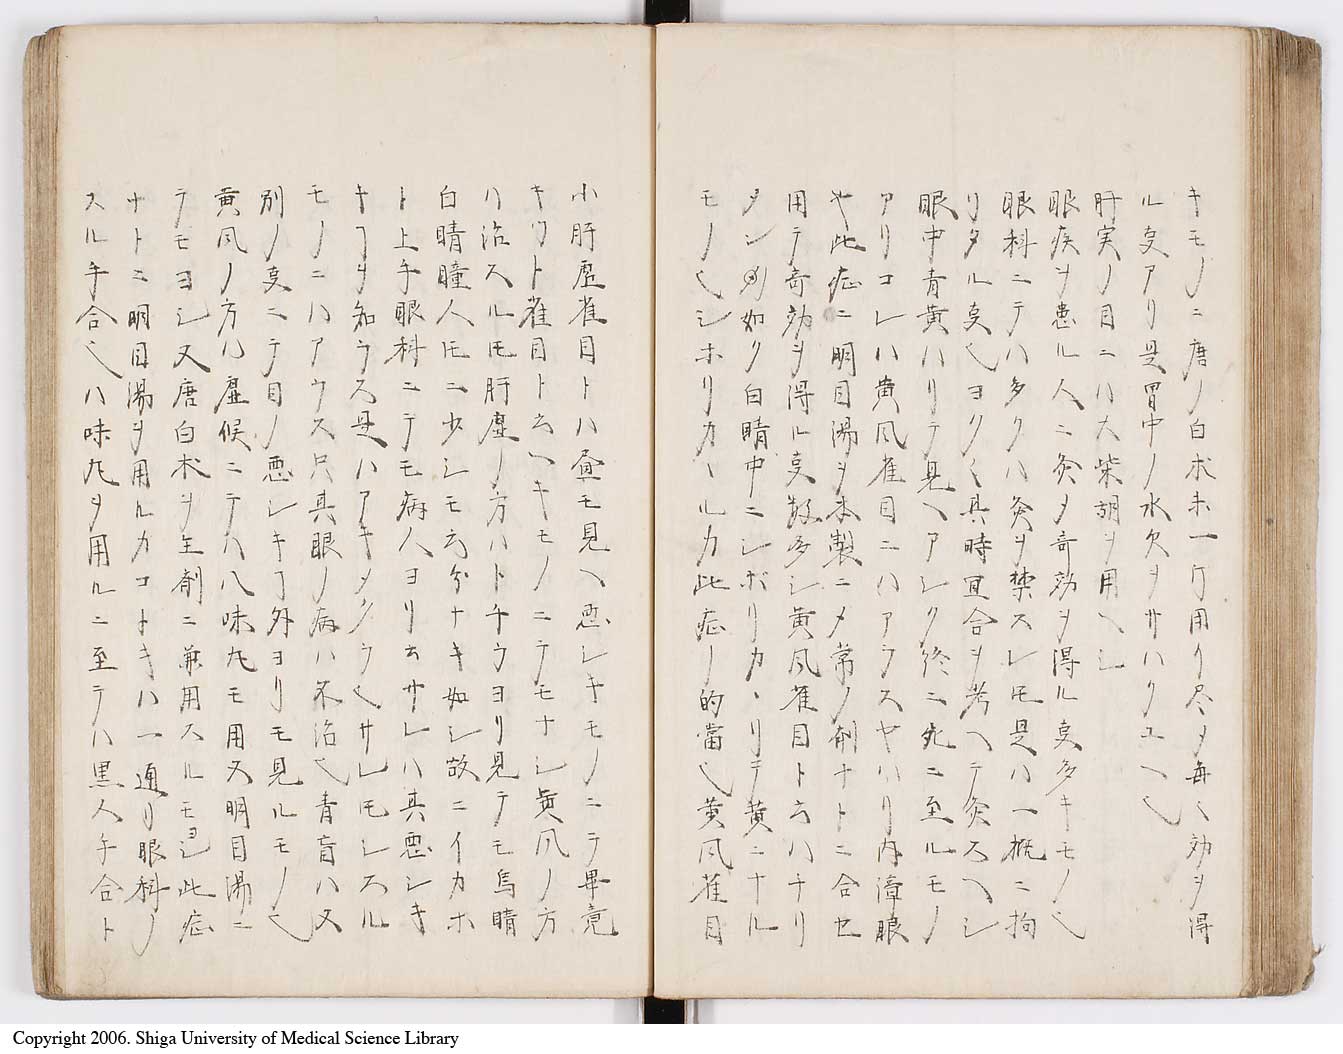 キモノニ唐ノ白朮末一斤用ク尽メ毎〻効ヲ得
ル叓アリ是胃中ノ水欠ヲサハクユヘ也
肝実ノ目ニハ大柴胡ヲ用ヘシ
眼疾ヲ患ル人ニ灸メ奇効ヲ得ル叓多キモノ也
眼科ニテハ多クハ灸ヲ禁スレ𪜈是ハ一概ニ拘
リタル叓也ヨク〱其時宜合ヲ考ヘテ灸スヘシ
眼中青黄ハリテ見ヘアシク終ニ死ニ至ルモノ
アリコレハ黄風雀目ニハアラスヤハリ内漳眼
也此症ニ明目湯ヲ本製ニメ常ノ剤ナトニ合セ
用テ奇効ヲ得ル叓数多シ黄風雀目ト云ハチリ
メンノ如ク白睛中ニシボリカヽリテ黄ニナル
モノ也シホリカヽルカ此症ノ的當也黄風雀目
小肝虚雀目トハ昼モ見ヘ悪シキモノニテ畢竟
キリト雀目ト云ヘキモノニテモナシ黄風ノ方
ハ治スル𪜈肝虚ノ方ハトチラヨリ見テモ烏睛
白睛瞳人𪜈ニ少シモ云分ナキ如シ故ニイカホ
ト上手眼科ニテモ病人ヨリ云サレハ其悪シキ
キヿヲ知ラス是ハアキメクラ也サレ𪜈シスル
モノニハアラス只其眼ノ病ハ不治也青盲ハ又
別ノ叓ニテ目ノ悪シキヿ外ヨリモ見ルモノ也
黄風ノ方ハ虚候ニテハ八味丸モ用又明目湯ニ
テモヨシ又唐白朮ヲ生剤ニ兼用スルモヨシ此症
ナトニ明目湯ヲ用ルカコトキハ一通リ眼科ノ
スル手合也八味丸ヲ用ルニ至テハ黒人手合ト
Copyright 2006. Shiga University of Medical Science Library